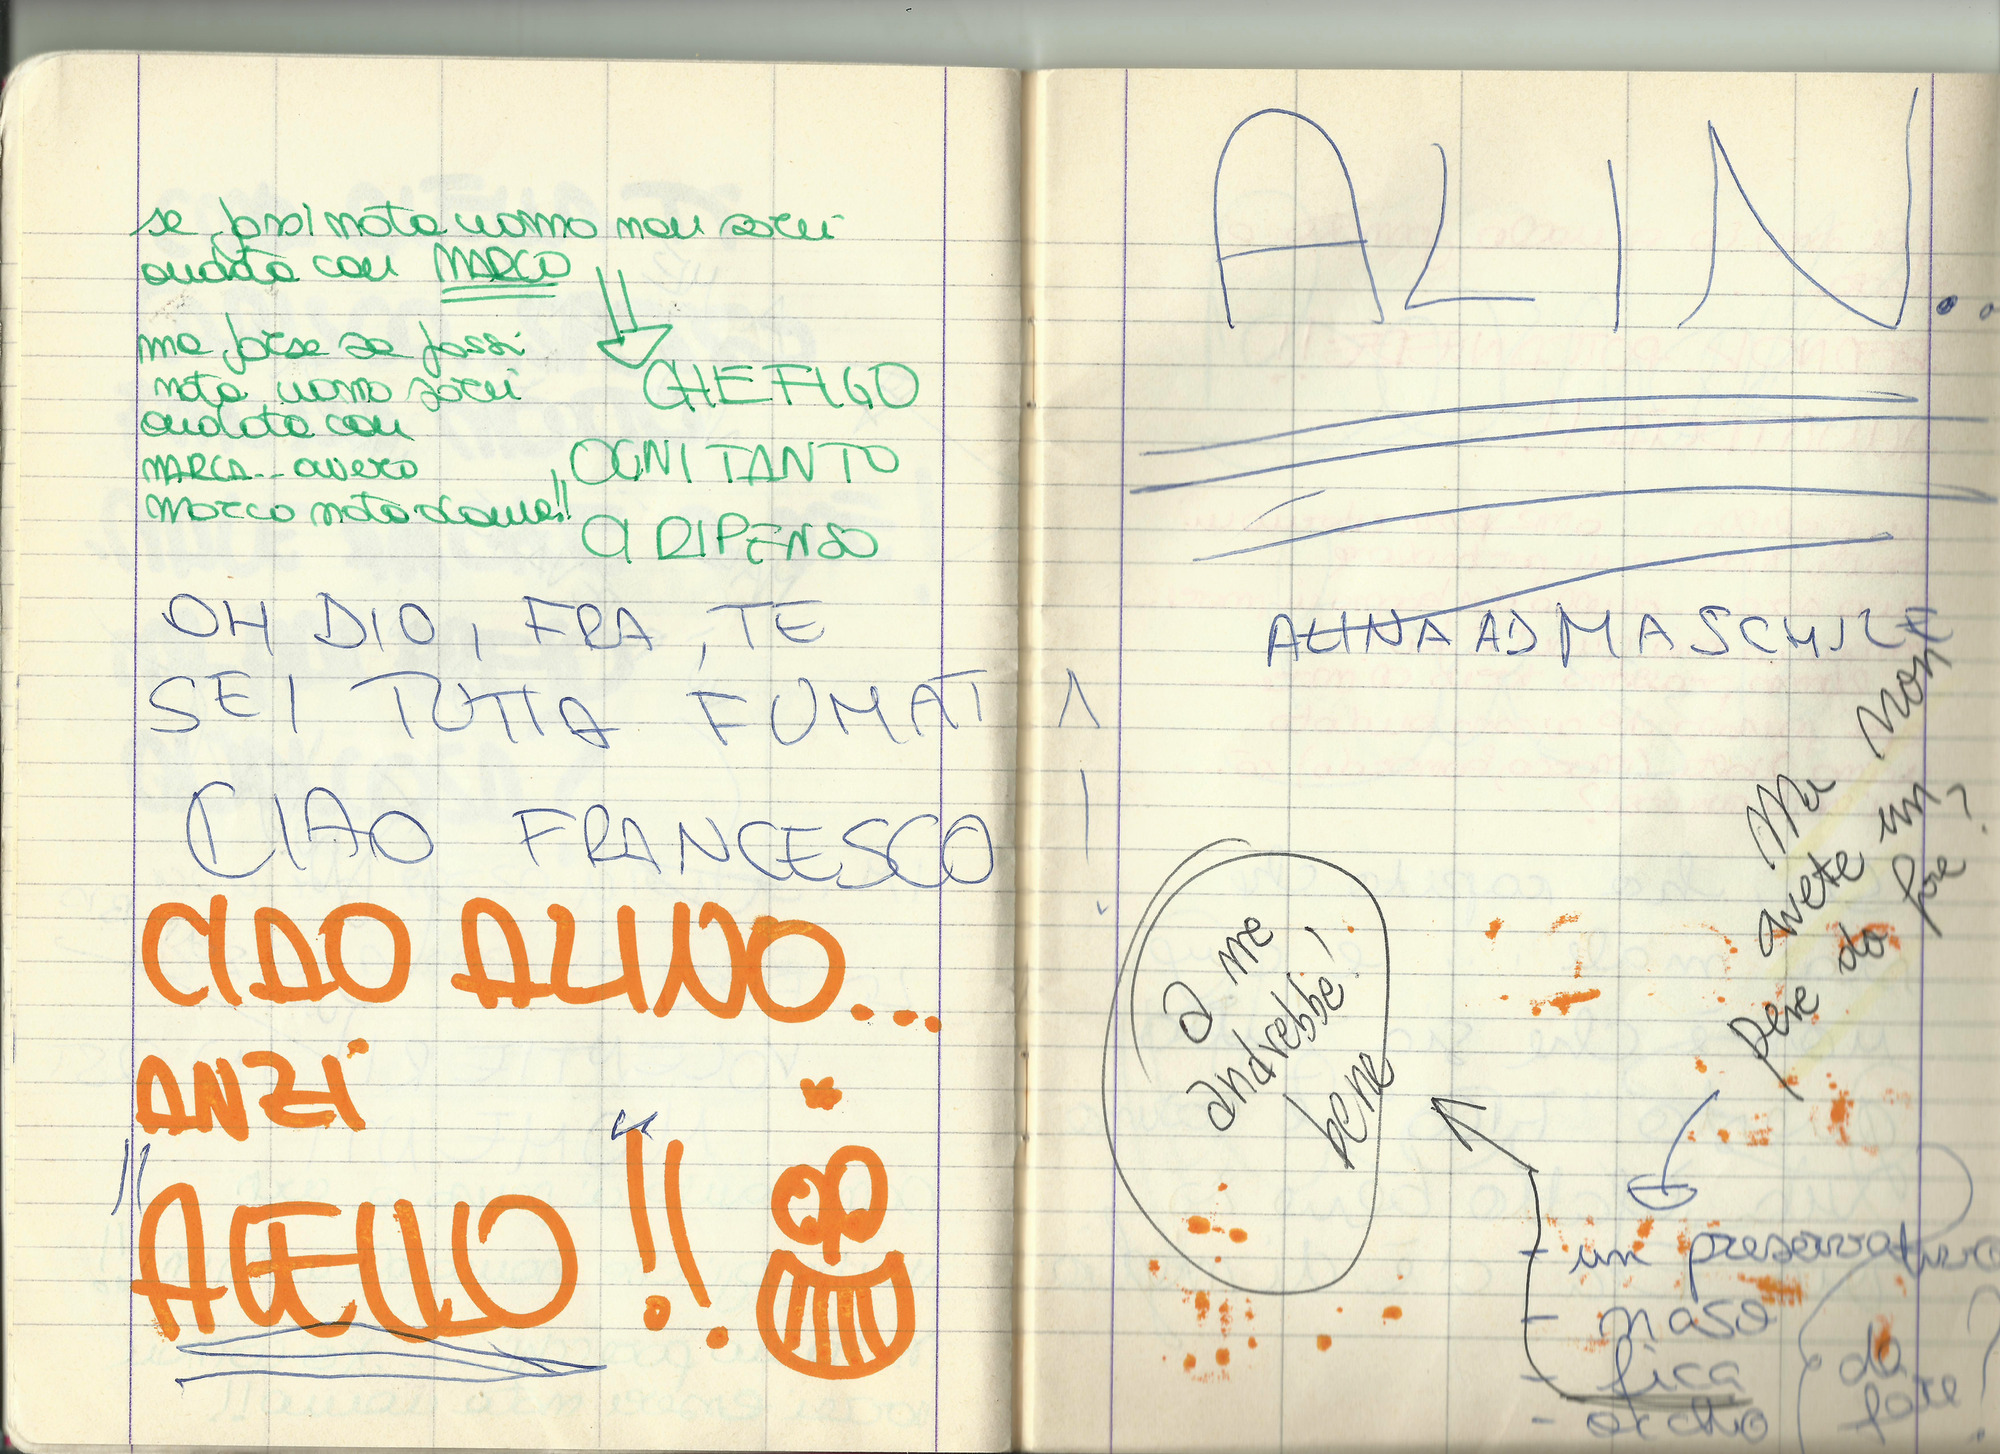 se fossi nata uomo non sarei
andata con MARCO
ma forse se fossi
nata uomo sarei
andata con
MARCA.. ovvero
marco nato donna!!
CHE FIGO
OGNI TANTO
CI RIPENSO
OH DIO, FRA, TE
SEI TUTTA FUMATA
CIAO FRANCESCO!
CIAO ALINO...
ANZI
"AIELLO"!!
ALIN..
ALINA AD MASCHILE
Ma non
avete un
pene da fare?
a me
andrebbe!
bene
- un preservativo
- naso
- fica
- occhio
da
fare?